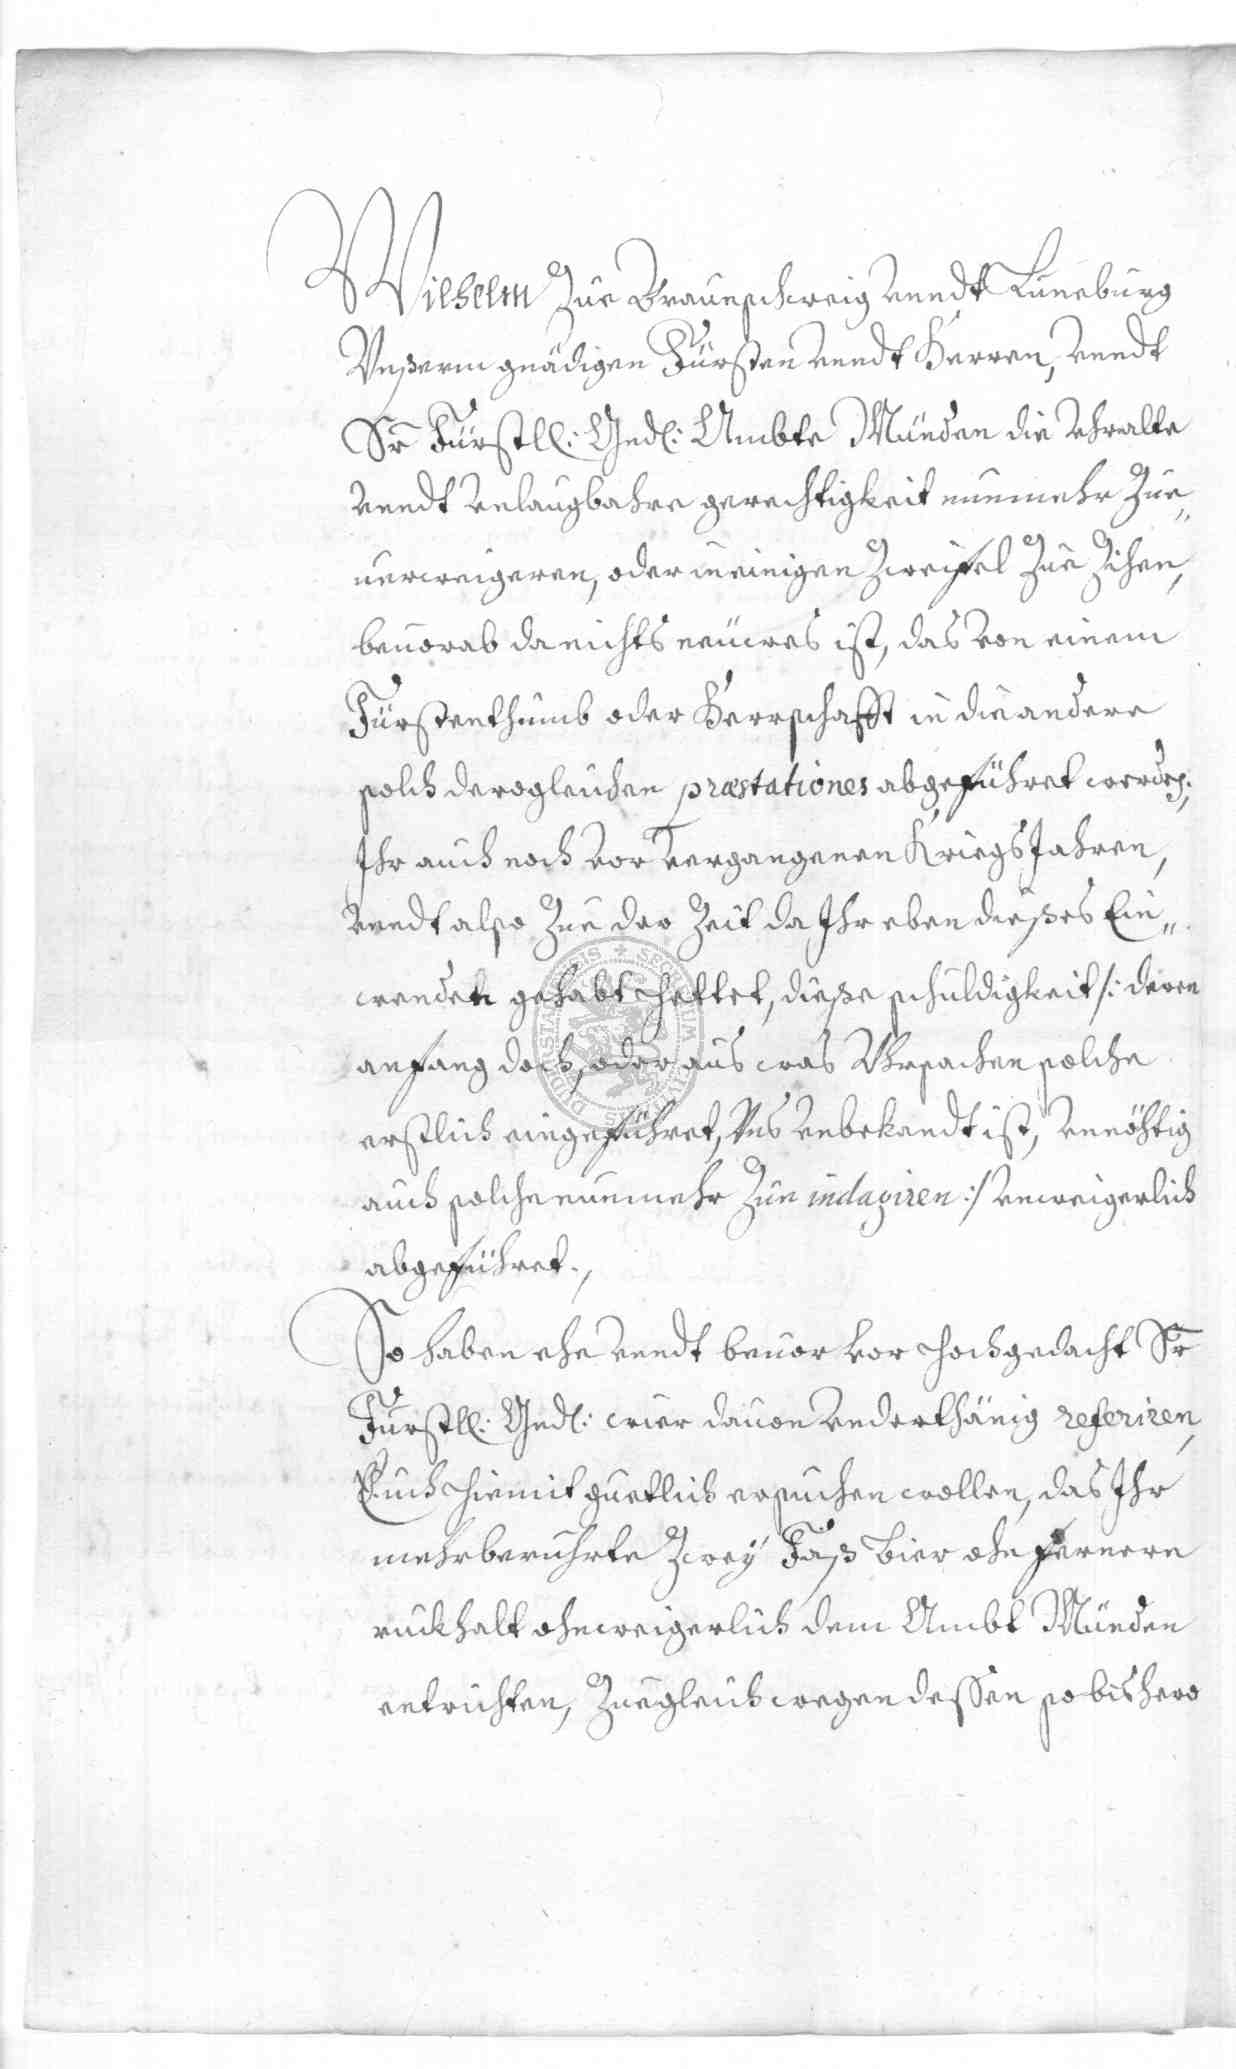 Wilhelm Zue Braunschweig vundt Luneburg
Vnserm gnädigen Fürsten vndt Herren, vndt
Sr Fürstll: Gndl: Ambte Münden die vhralte
vndt vnlaugbahre gerechtigkeit nunmehr Zue„
uerweigeren, oder in einigen Zweifel Zue Zihen,
beuorab da nichts neüwes ist, das von einem
Fürstenthumb oder Herrschafft in die andere
solch derogleichen præstationes abgeführet werden;
Ihr auch noch vor vergangenen Kriegs Jahren,
vndt also Zue der Zeit da Ihr eben dießes Ein„
wenden gehabt hettet, dieße schuldigkeit /: deren
anfang doch, oder aus was Vhrsachen solche
erstlich eingeführet, Vns vnbekandt ist, vnnöhtig
auch solche nunmehr Zue indagiren :/ vnweigerlich
abgeführet.,
So haben ehe vndt beuor vor hochgedacht Sr
Fürstll: Gndl: wier dauon vnderthänig referiren,
Euch hiemit guetlich ersuchen wollen, das Ihr
mehrberührte Zwey Faß bier ohn fernern
rückhalt ohnweigerlich dem Ambt Münden
entrichten, Zuegleich wegen dessen so bishero
SECRETUM CIVITATIS DUDERSTADENSIS